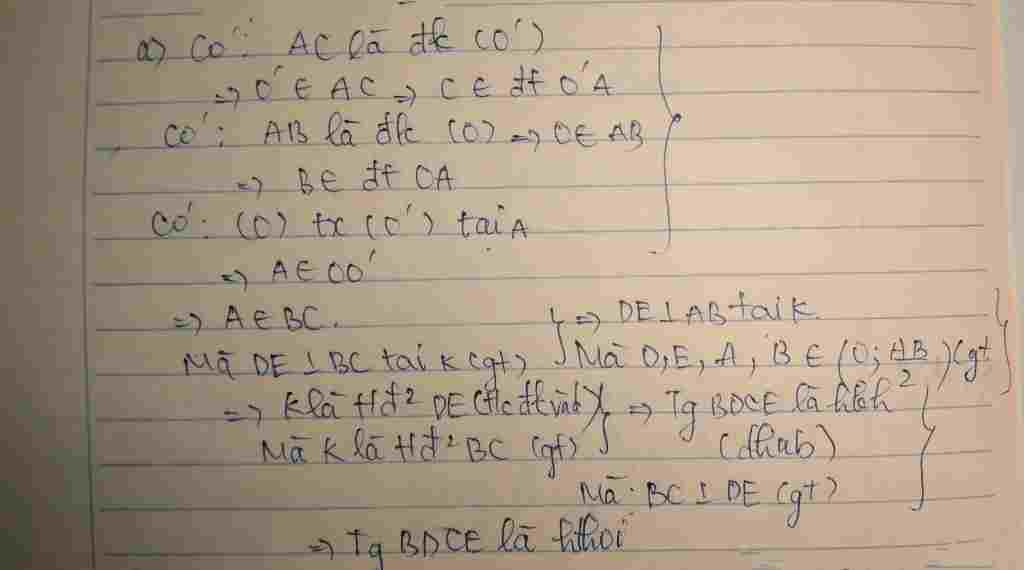 a) Có: AC là đk (O')
=> O' ∈ AC => C ∈ đt O'A
Có: AB là đk (O) => O ∈ AB
=> B ∈ đt OA
Có: (O) tx (O') tại A
=> A ∈ OO'
=> A ∈ BC. => DE ⊥ AB tại K
Mà DE ⊥ BC tại K (gt) Mà D, E, A, B ∈ (O; AB/2) (gt
=> K là tđ² DE (đlc đk và d) => Tg BDCE là hbh
Mà K là tđ² BC (gt) (dhnb)
Mà BC ⊥ DE (gt)
=> Tg BDCE là hthoi